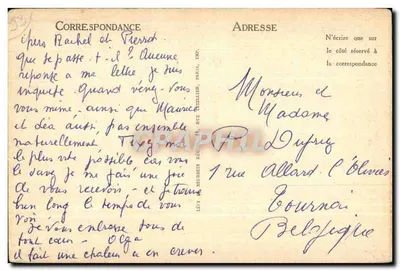 CORRESPONDANCE
chers Rachel et Pierrot
que se passe-t-il? Aucune
réponse a ma lettre, je suis
inquiète Quand venez-vous
vous même, ainsi que Maurice
et Léa aussi, pas ensemble
naturellement
le plus vite possible car vous
le savez je me fais une joie
de vous recevoir - et je trouve
bien long le temps de vous
voir
je vous embrasse tous de
tout cœur - Olga
il fait une chaleur a en crever
ADRESSE
N'écrire que sur
le côté réservé à
la correspondance
Monsieur et
Madame
P. Dufey
1 rue Allard l'Olivier
Tournai
Belgique